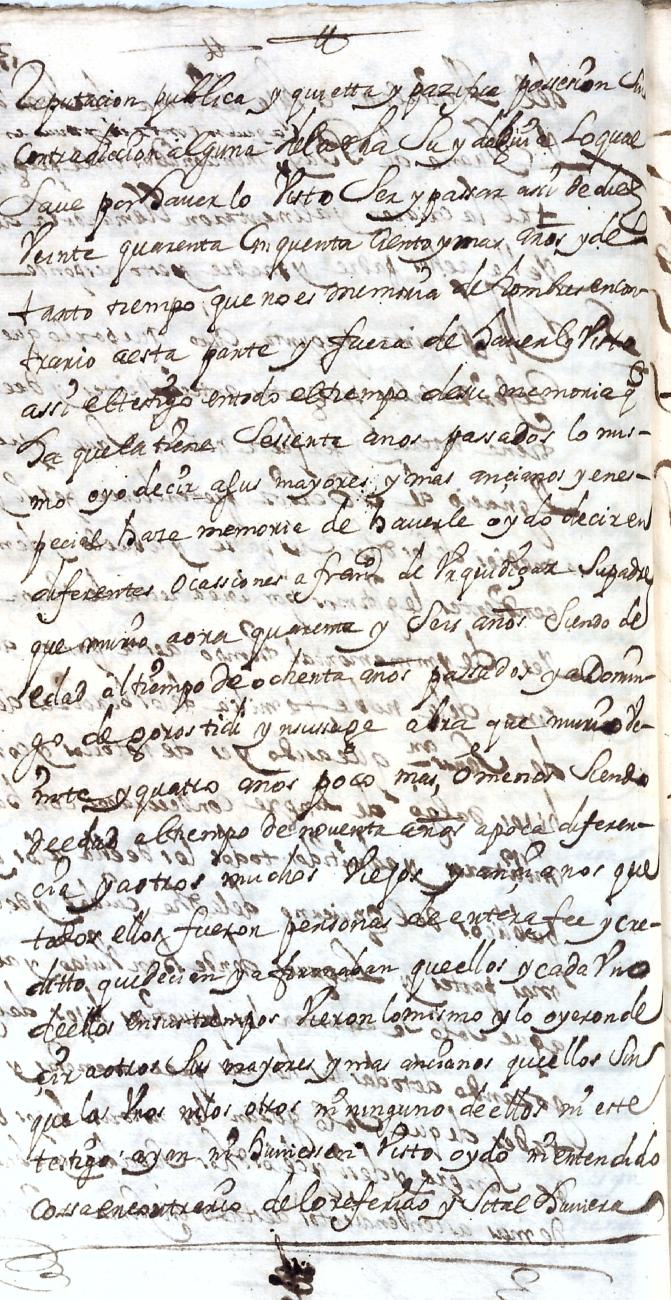 Reputacion publica y quietta y pazifica possesion sin
contradiccion alguna dela dha Su y dalguia Loqual
Save por haver lo Visto Ser y passar assi de diez
Veinte quarenta Cinquenta Ciento y mas años y de
tanto tiempo, que no es memoria de hombres en con
trario aesta parte y fuera de haverlo Visto
assi eltestigo entodo eltiempo desu memoria q
ha que la tiene Sesenta anos passados lo mis-
mo oyo decir asus mayores y mas ancianos y enes-
pecial haze memoria de haverle oydo decir en
diferentes ocassiones a franco de Urquidizar Supadre
que murio aora quarenta y Seis años Siendo de
edad altiempo de ochenta años passados y a Domin-
go de gorostidi ynsussaga abra que murio Ve-
inte y quatro años poco mas, o menos Siendo
deedad altiempo de noventa años apoca diferen-
cia yaotros muchos Viejos y ancianos que
todos ellos fueron personas de entera fee y cre-
ditto, quedecian y afirmaban queellos y cada Uno
deellos ensus tiempos Vieron lomismo y lo oyeron de
çir aotros Sus mayores y mas ancianos queellos Sin
que los Unos nilos ottos ni ninguno deellos ni este
testigo ayan ni huviessen Visto oydo ni entendido
cossa encontrario delo referido y Sital huviera